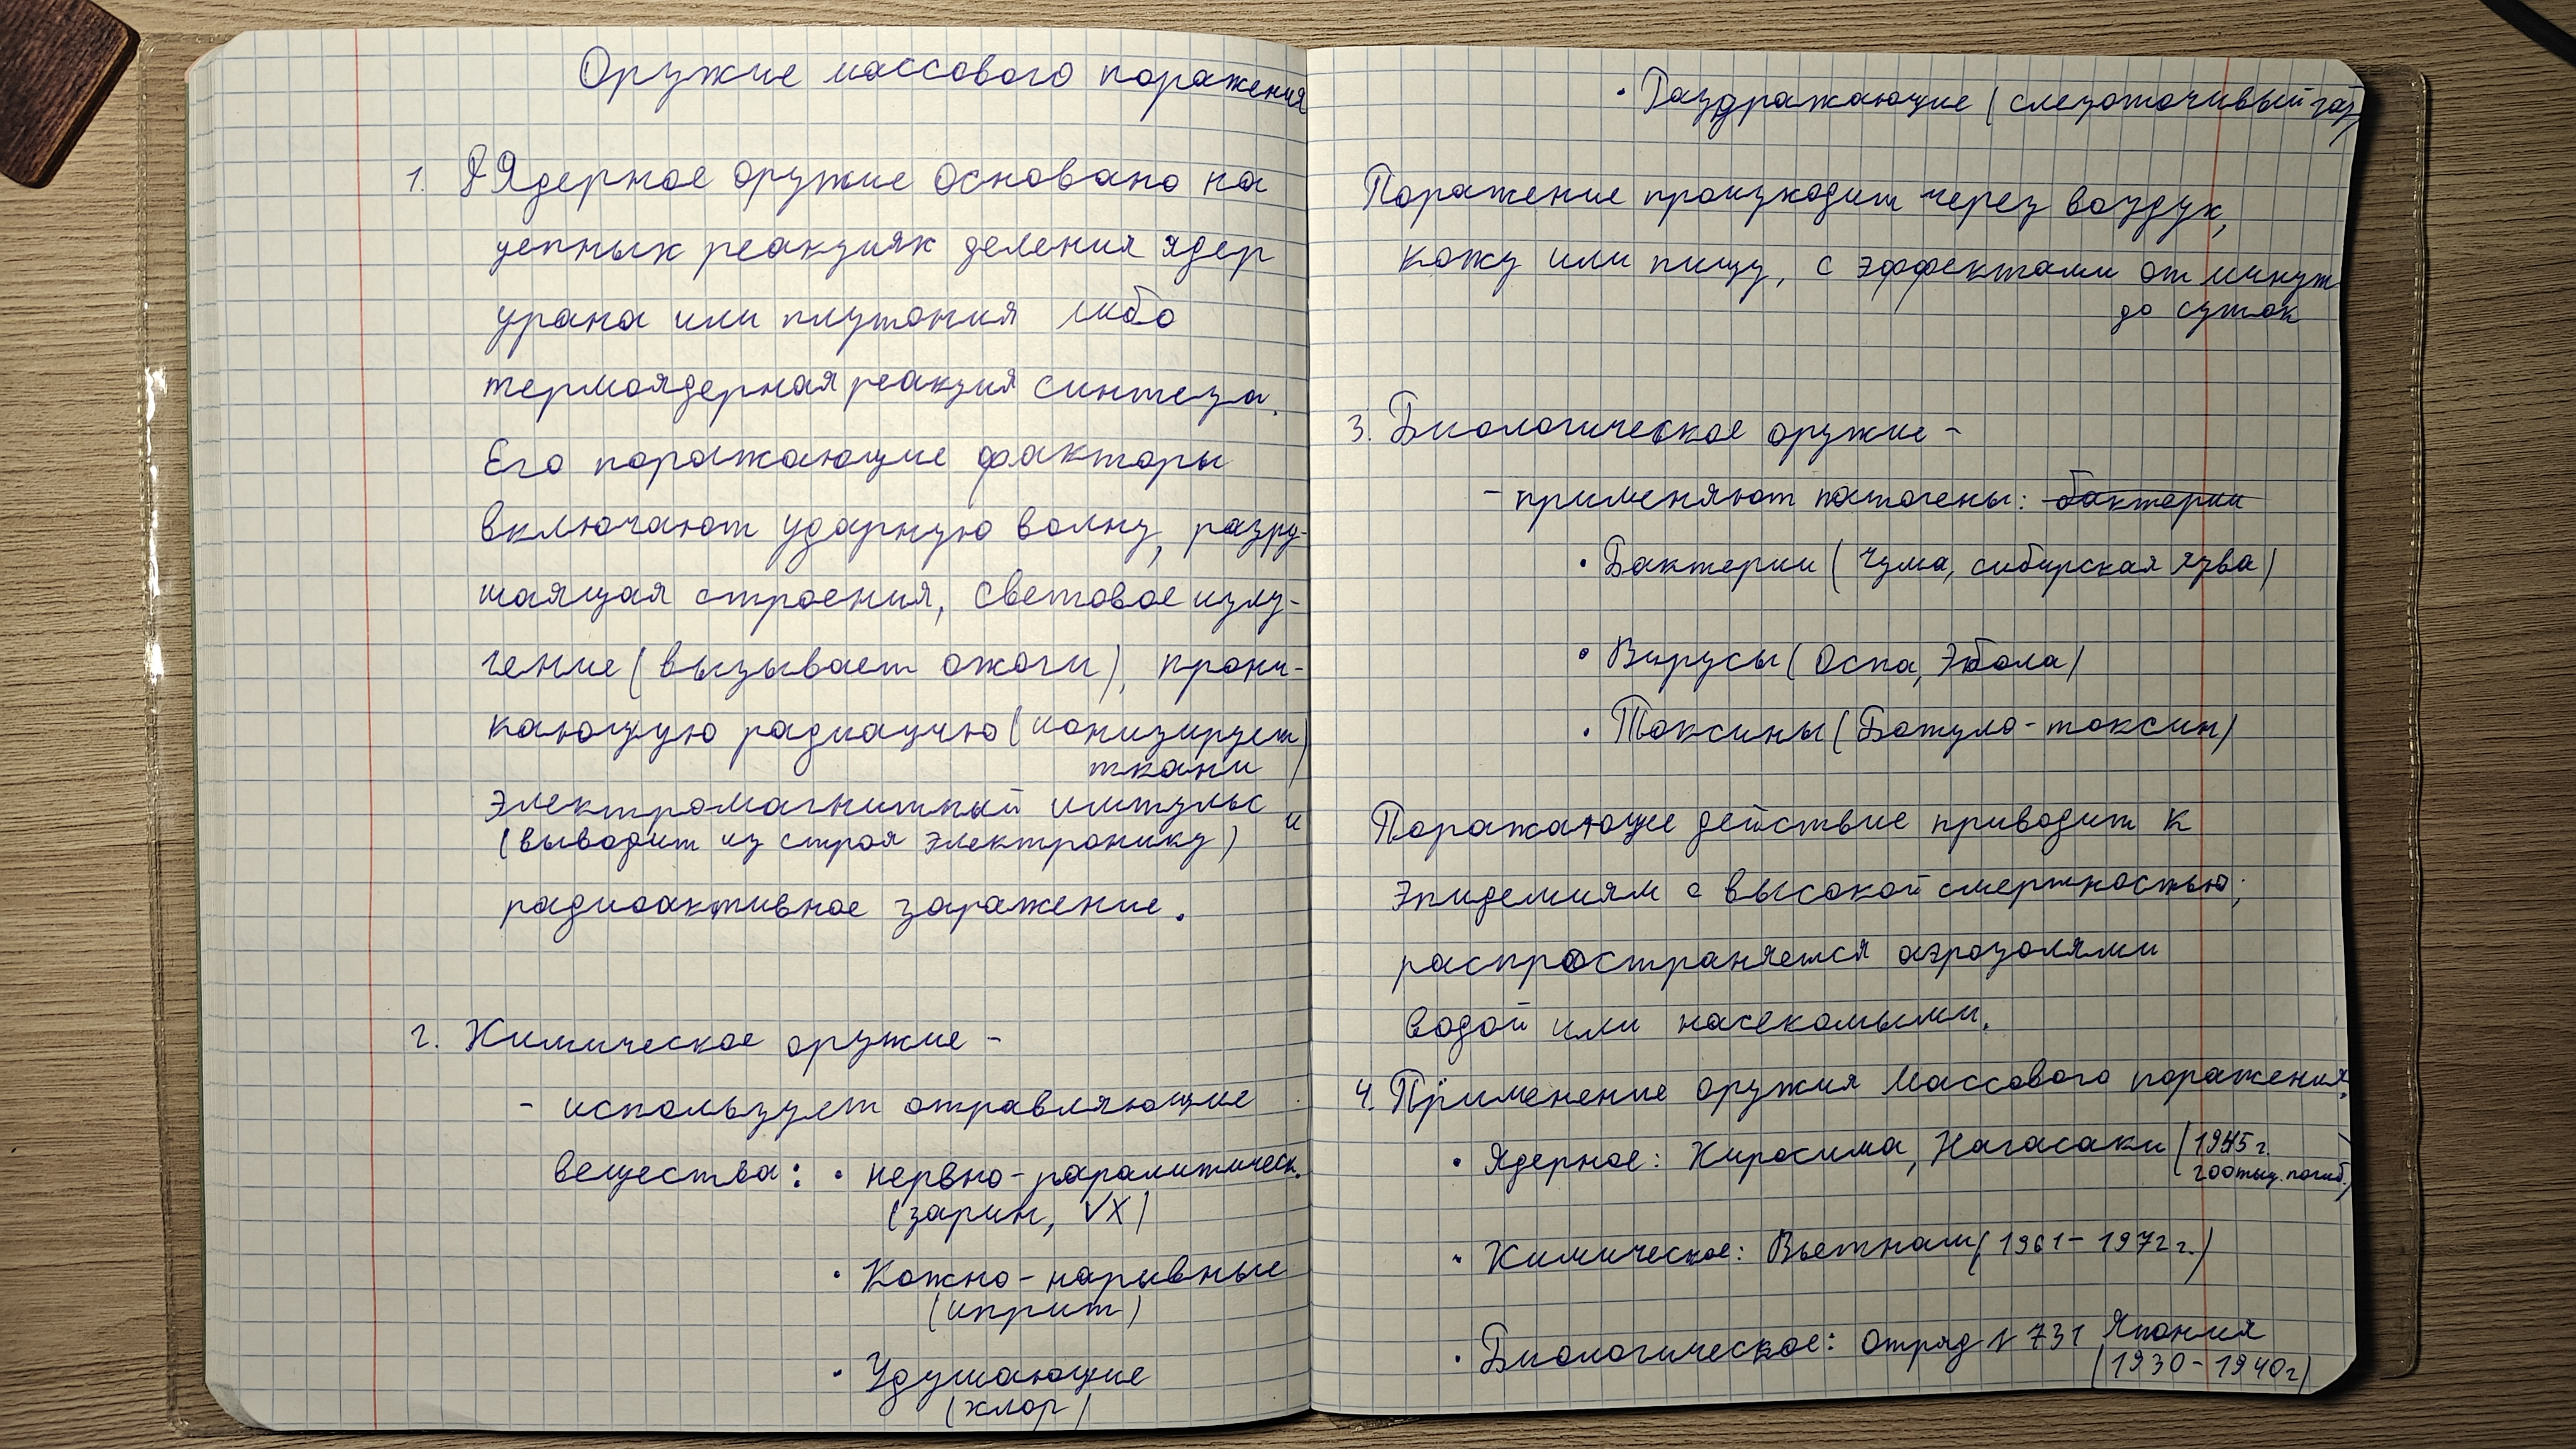 Оружие массового поражения
1. Ядерное оружие основано на
цепных реакциях деления ядер
урана или плутония либо
термоядерная реакция синтеза.
Его поражающие факторы
включают ударную волну, разру-
шаящая строения, световое излу-
чение (вызывает ожоги), прони-
кающую радиацию (ионизирует
ткани)
электромагнитный импульс
(выводит из строя электронику) и
радиоактивное заражение.
2. Химическое оружие -
- использует отравляющие
вещества: • нервно-паралитическ.
(зарин, VX)
• Кожно-нарывные
(иприт)
• Удушающие
(хлор)
• Раздражающие (слезоточивый газ)
Поражение происходит через воздух,
кожу или пищу, с эффектами от минут
до суток
3. Биологическое оружие -
- применяют патогены: бактерии
• Бактерии (Чума, сибирская язва)
• Вирусы (Оспа, Эбола)
• Токсины (Ботуло-токсин)
Поражающее действие приводит к
эпидемиям с высокой смертностью;
распространяется аэрозолями
водой или насекомыми.
4. Применение оружия Массового поражения.
• Ядерное: Хиросима, Нагасаки (1945 г.
200тыс. погиб.)
• Химическое: Вьетнам (1961-1972 г.)
• Биологическое: Отряд № 731 Япония
(1930-1940г)